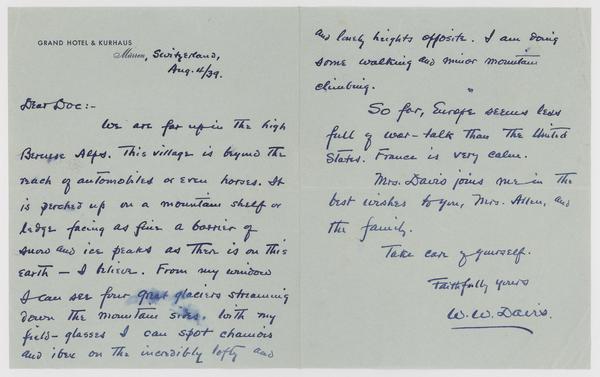 GRAND HOTEL & KURHAUS
Mürren, Switzerland,
Aug. 4/39.
Dear Doc:-
We are far up in the high
Bernese Alps. This village is beyond the
reach of automobiles or even horses. It
is perched up on a mountain shelf or
ledge facing as fine a barrier of
snow and ice peaks as there is on this
earth — I believe. From my window
I can see four great glaciers streaming
down the mountain sides. With my
field-glasses I can spot chamois
and ibex on the incredibly lofty and
and lonely heights opposite. I am doing
some walking and minor mountain
climbing.
So far, Europe seems less
full of war-talk than the United
States. France is very calm.
Mrs. Davis joins me in the
best wishes to you, Mrs. Allen, and
the family.
Take care of yourself.
Faithfully yours
W. W. Davis.